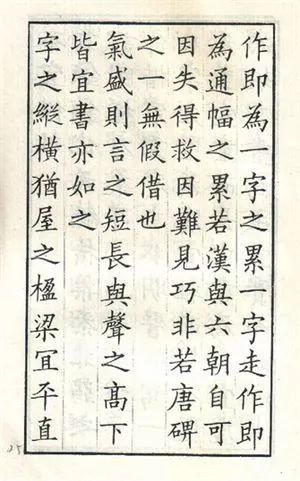 作即為一字之累一字走作即
為通幅之累若漢與六朝自可
因失得救因難見巧非若唐碑
之一無假借也
氣盛則言之短長與聲之高下
皆宜書亦如之
字之縱橫猶屋之楹梁宜平直